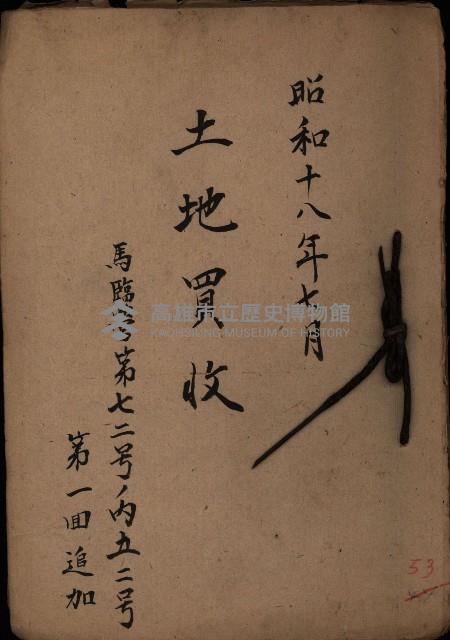 昭和十八年七月
土地買收
馬臨命第七二号ノ内五二号
第一回追加
高雄市立歷史博物館
KAOHSIUNG MUSEUM OF HISTORY
53